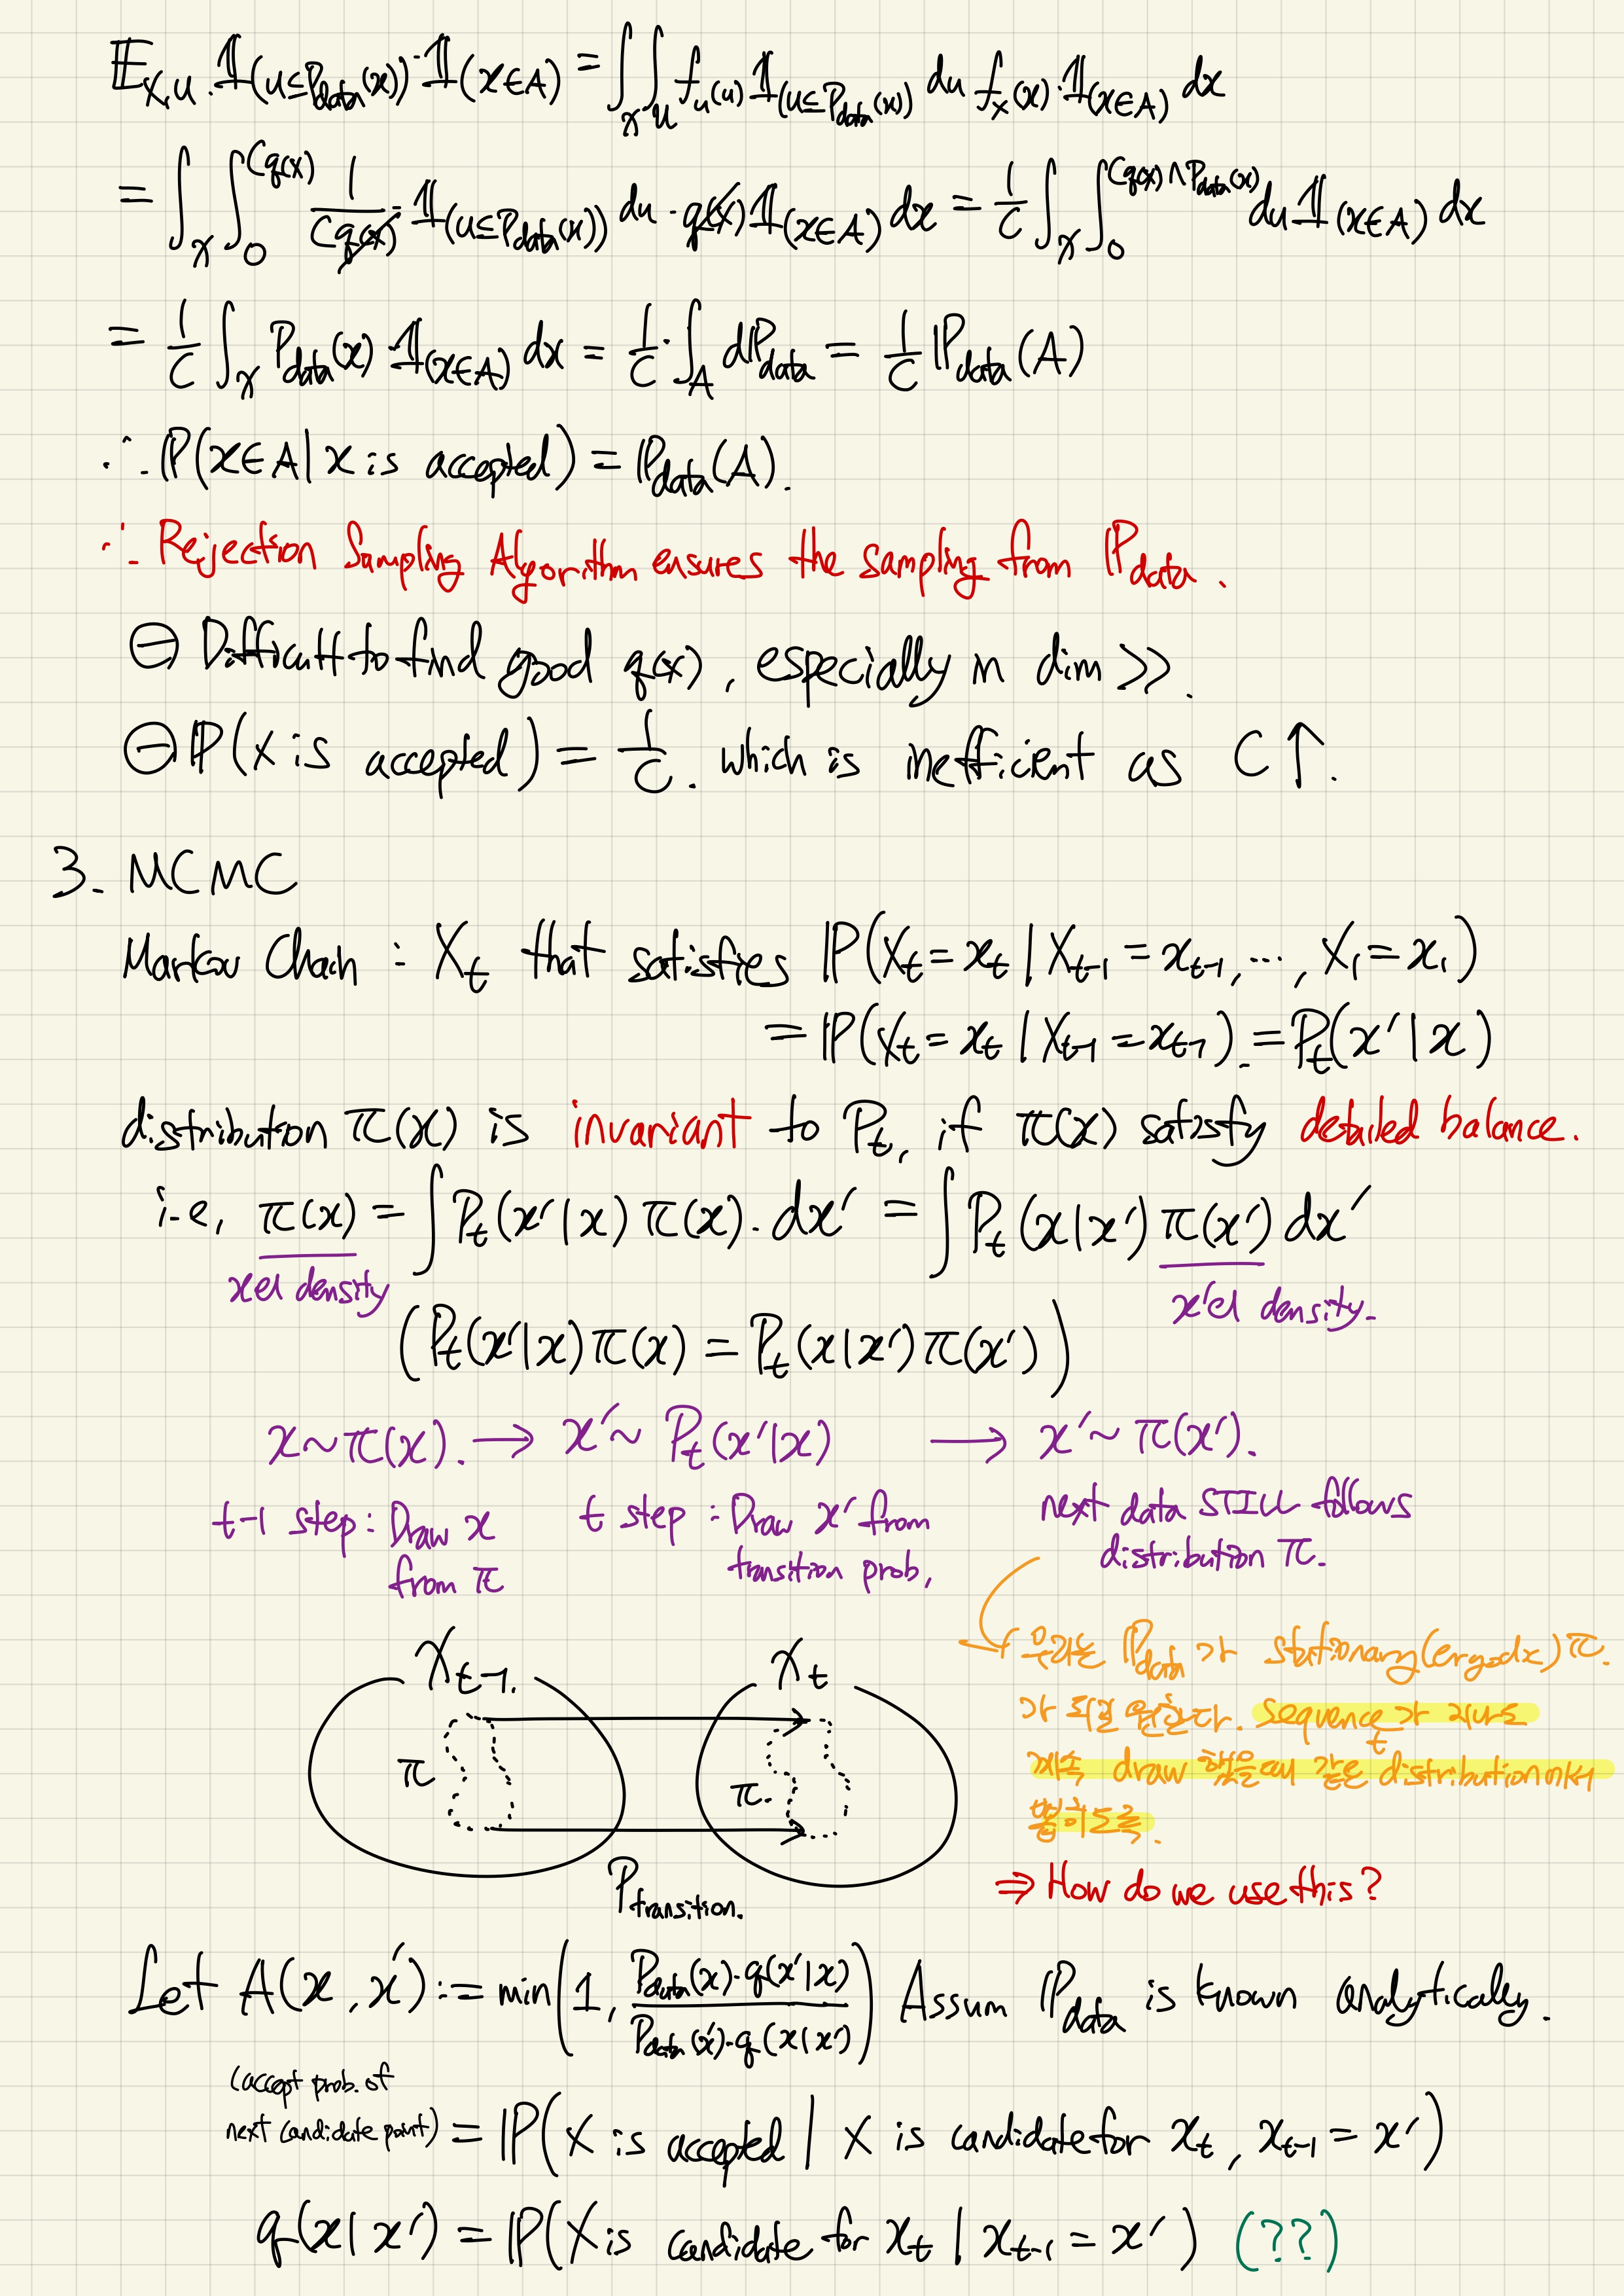 𝔼_{X,U} · 𝟙_{(u≤P_data(x))} · 𝟙_{(x∈A)} = ∫_x ∫_u f_u(u) 𝟙_{(u≤P_data(x))} du f_x(x) · 𝟙_{(x∈A)} dx
= ∫_x ∫_0^{Cq(x)} 1/(Cq(x)) · 𝟙_{(u≤P_data(x))} du · q(x) 𝟙_{(x∈A)} dx = 1/C ∫_x ∫_0^{Cq(x)∧P_data(x)} du 𝟙_{(x∈A)} dx
= 1/C ∫_x P_data(x) · 𝟙_{(x∈A)} dx = 1/C · ∫_A dℙ_data = 1/C ℙ_data(A)
∴ ℙ(x∈A | x is accepted) = ℙ_data(A).
∴ Rejection Sampling Algorithm ensures the sampling from ℙ_data.
⊖ Difficult to find good q(x), especially in dim >>.
⊖ ℙ(X is accepted) = 1/C. which is inefficient as C↑.
3. MCMC
Markov Chain : X_t that satisfies ℙ(X_t = x_t | X_{t-1} = x_{t-1}, ..., X_1 = x_1)
= ℙ(X_t = x_t | X_{t-1} = x_{t-1}). = P_t(x'|x)
distribution π(x) is invariant to P_t, if π(x) satisfy detailed balance.
i.e, π(x) = ∫ P_t(x'|x) π(x). dx' = ∫ P_t(x|x') π(x') dx'
x의 density
x'의 density.
(P_t(x'|x)π(x) = P_t(x|x')π(x'))
x~π(x). → x'~ P_t(x'|x) → x'~ π(x').
t-1 step : Draw x from π
t step : Draw x' from transition prob,
next data STILL follows distribution π.
X_{t-1}.
X_t
π
π.
P_transition.
우리는 ℙ_data 가 stationary(ergodx) π.
가 되길 원한다. Sequence_t 가 지나도
계속 draw 했을때 같은 distribution에서
뽑히도록.
⇒ How do we use this?
Let A(x, x') := min(1, P_data(x)·q(x'|x) / P_data(x')·q(x|x')) Assum ℙ_data is known analytically.
(accept prob. of
next candidate point) = ℙ(X is accepted | X is candidate for x_t, x_{t-1} = x')
q(x|x') = ℙ(X is candidate for x_t | x_{t-1} = x') (??)